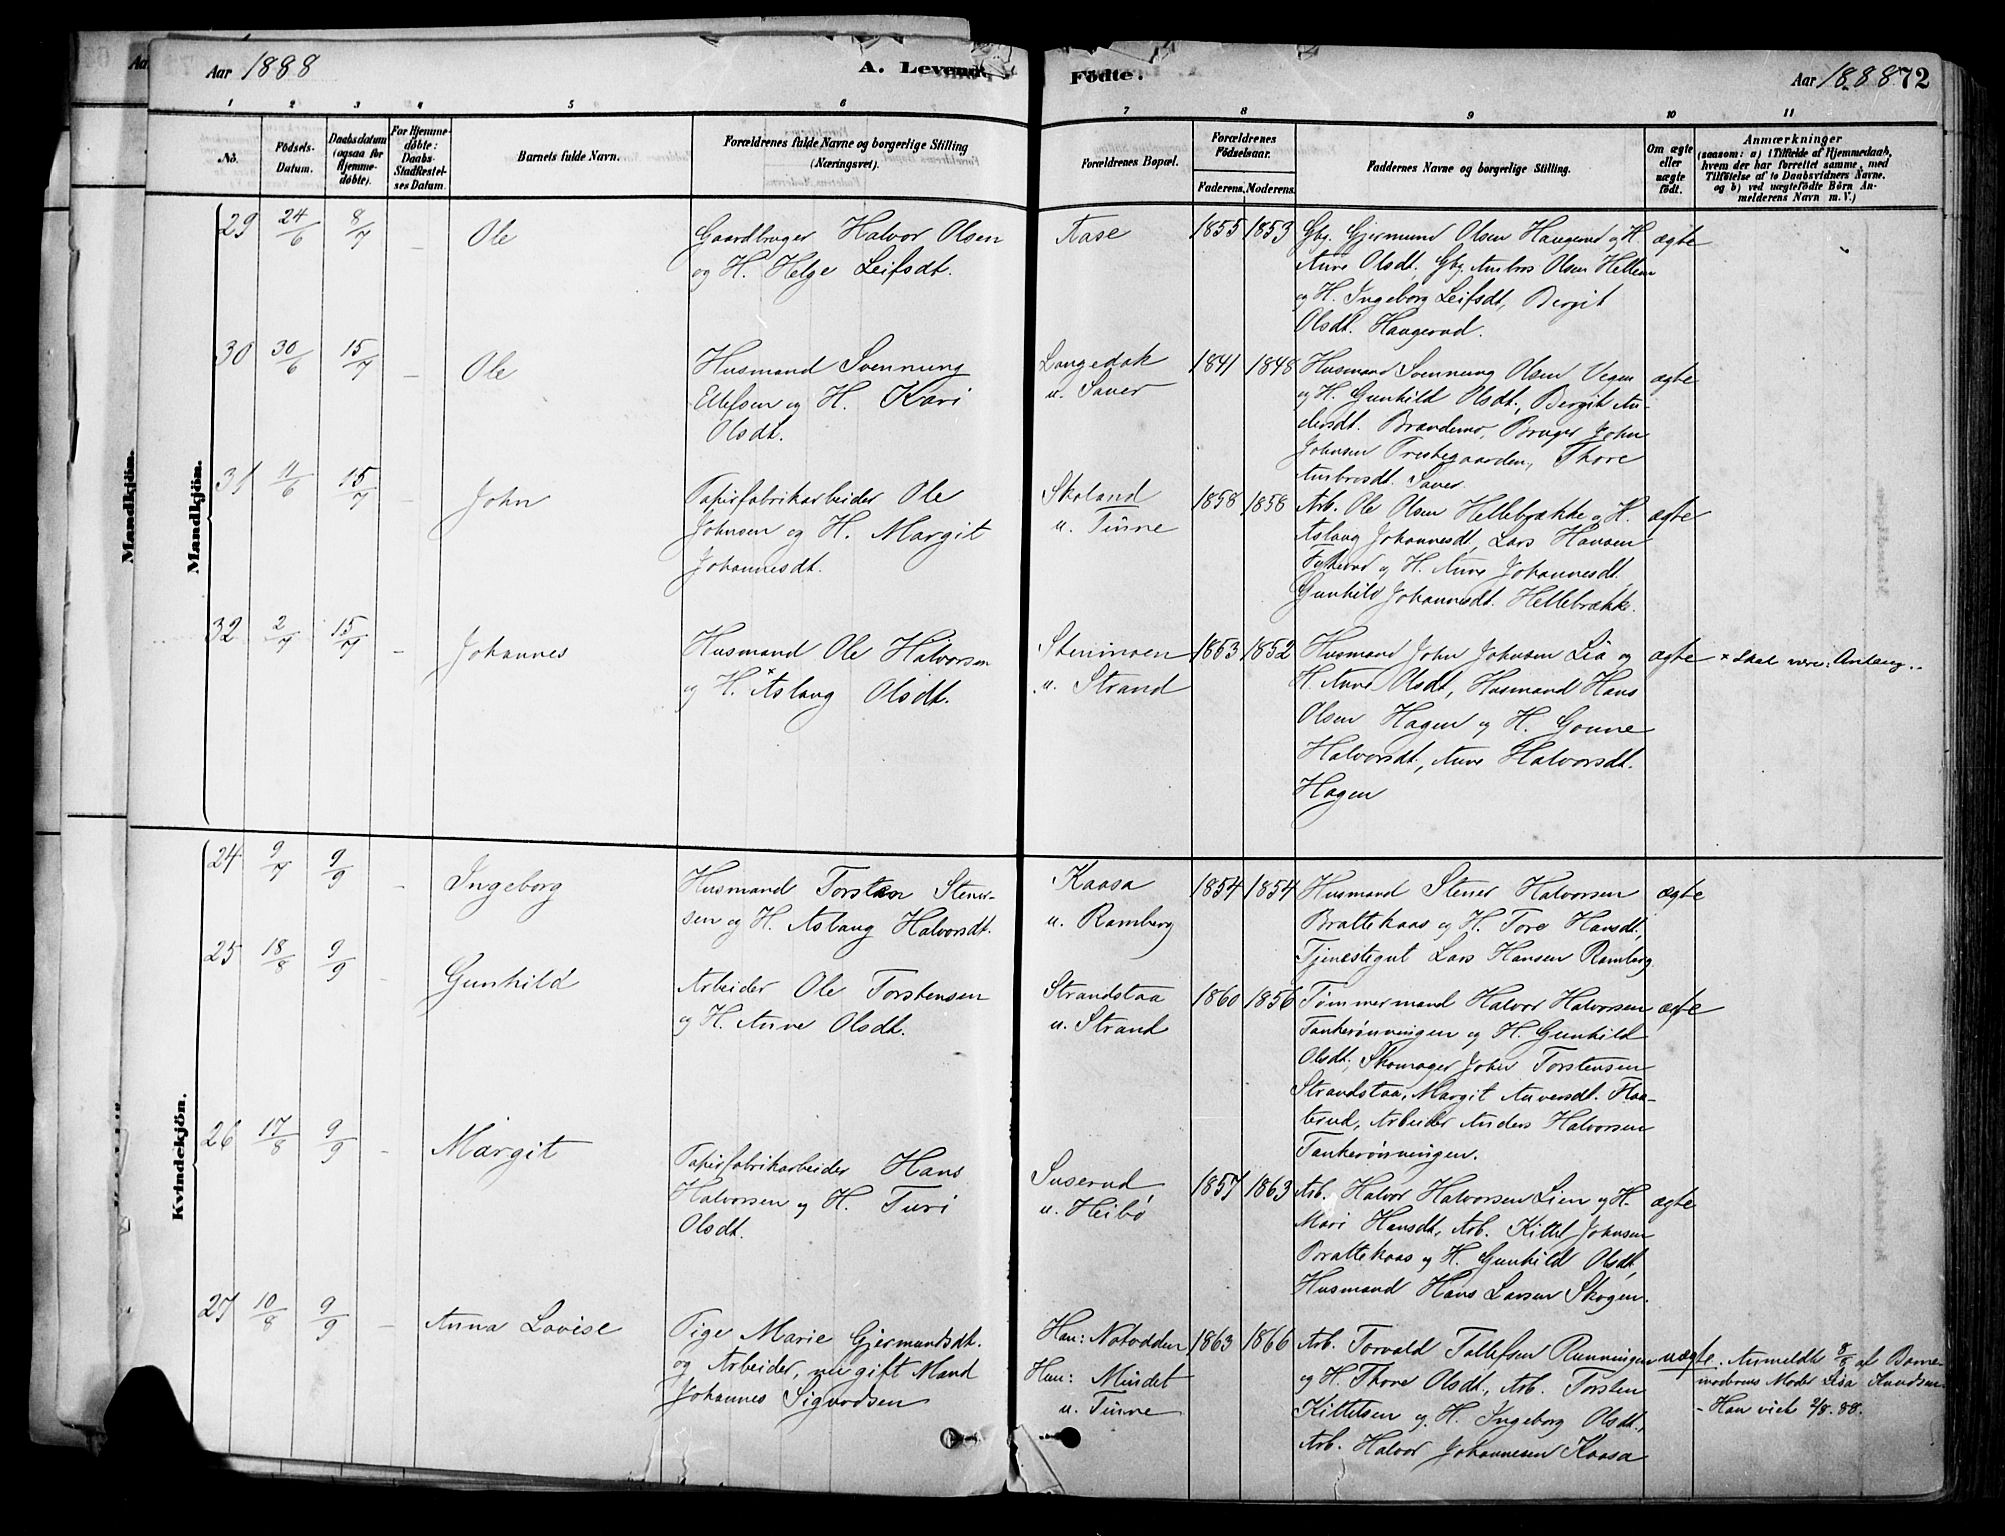 Aar 1888
A. Levende
Fødte.
Aar 1888
72
1 2 3 4 5 6 7 8 9 10 11
No.
Fødsels-
Datum.
Daabsdatum
(ogsaa for
Hjemme-
døbte).
For Hjemme-
døbte:
Daabs-
Stadfæstel-
ses Datum.
Barnets fulde Navn.
Forældrenes fulde Navne og borgerlige Stilling
(Næringsvei).
Forældrenes Bopæl.
Forældrenes
Fødselsaar.
Faderens. Moderens.
Faddernes Navne og borgerlige Stilling.
Om ægte
eller
uægte
født.
Anmærkninger
(saasom: a) i Tilfælde af Hjemmedaab,
hvem der har forrettet samme, med
Tilføielse af to Daabsvidners Navne.
og b) ved uægtefødte Børn An-
melderens Navn m. V.)
Mandkjøn.
Mandkjøn.
29 24/6 8/7 - Ole
Gaardbruger Halvor Olsen
og H. Helge Leifsdt.
Aase
1855 1853
Gbg. Gjermund Olsen Haugerud og H.
Anne Olsdt, Gbg. Ambros Olsen
og H. Ingeborg Leifsdt, Bergit
Olsdt. Haugerud.
ægte
30 30/6 15/7 - Ole
Husmand Svennung
Ellefsen og H. Kari
Olsdt.
Langedak
u. Saner
1841 1848
Husmand Svennung Olsen
og H. Gunhild Olsdt., Bergit An-
dersdt. Brandemo, Bruger John
Johnsen Prestegaarden, Thore
Ambrosdt. Saner.
ægte
31 11/6 15/7 - John
Papirfabrikarbeider Ole
Johnsen og H. Margit
Johannesdt.
Skoland
u. Tinne
1858 1858
Arb. Ole Olsen Hellebrække og H.
Aslaug Johannesdt, Lars Hansen
og H. Anne Johannesdt,
Gunhild Johannesdt. Hellebrække.
ægte
32 2/7 15/7 - Johannes
Husmand Ole Halvorsen
og H. × Aslaug Olsdt.
Stenmoen
u. Strand
1853 1852
Husmand John Johnsen Lia og
H. Anne Olsdt, Husmand Hans
Olsen Hagen og H. Gonne
Halvorsdt, Anne Halvorsdt.
Hagen
ægte
× Skal være:
Kvindekjøn.
24 9/7 9/9 - Ingeborg
Husmand Torsten Stener-
sen og H. Aslaug Halvorsdt.
Kaasa
u. Ramberg
1854 1854
Husmand Stener Halvorsen
Brattekaas og H. Tore Hansdt,
Tjenestegut Lars Hansen Ramberg.
ægte
25 18/8 9/9 - Gunhild
Arbeider Ole Torstensen
og H. Anne Olsdt.
Strandstaa
u. Strand
1860 1856
Tømmermand Halvor Halvorsen
Tankerønningen og H. Gunhild
Olsdt, Skomager John Torstensen
Strandstaa, Margit Anversdt. Haa-
terud, Arbeider Anders Halvorsen
Tankerønningen.
ægte
26 17/8 9/9 - Margit
Papirfabrikarbeider Hans
Halvorsen og H. Turi
Olsdt.
Suserud
u. Heibø
1857 1863
Arb. Halvor Halvorsen Lien og H.
Mari Hansdt, Arb. Kittel Johnsen
Brattekaas og H. Gunhild Olsdt,
Husmand Hans Larsen Skogen.
ægte
27 10/8 9/9 - Anna Lovise
Pige Marie Gjermundsdt.
og Arbeider, nu gift Mand
Johannes Sigurdsen
Hun: Notodden
Han: Mindet
u. Tinne
1863 1866
Arb. Torvald Tollefsen Rønningen
og H. Thore Olsdt., Arb. Torsten
Kittelsen og H. Ingeborg Olsdt.,
Arb. Halvor Johannesen Kaasa
uægte.
Anmeldte 8/8 af Barne-
moderens Moder Lisa Knudsen.
- Han viet 2/8.88.